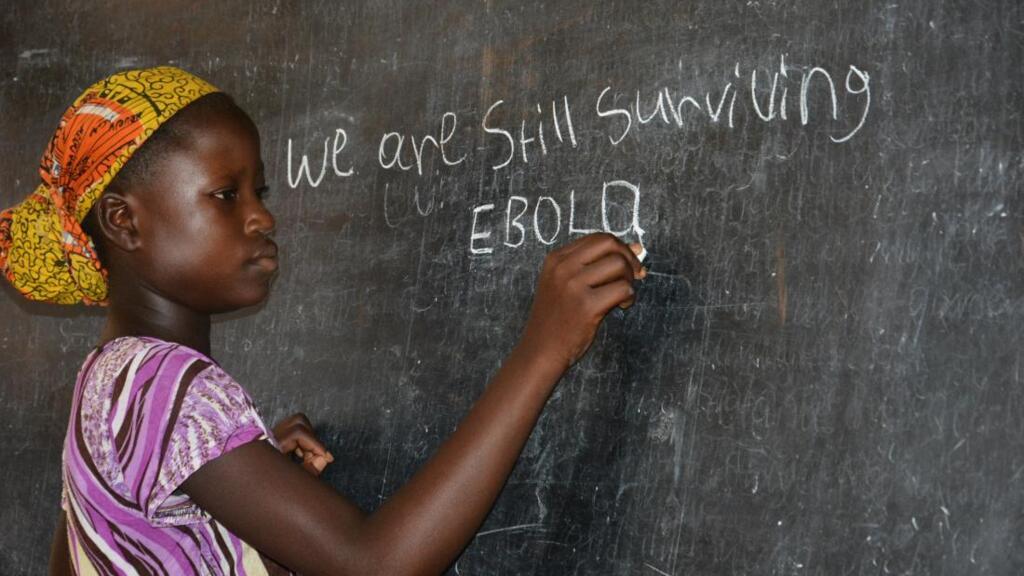 We are still surviving
EBOLa